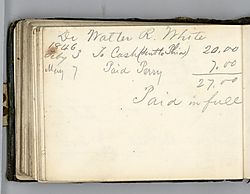 Dr Walter R. White
1846
Feby 3 To Cash (
) 20.00
May 7 Paid Perry 7.00
27.00
Paid in full